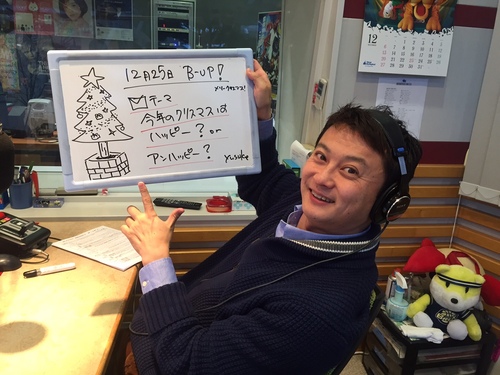 12月25日 B-UP!
メリークリスマス!
テーマ
今年のクリスマスは
ハッピー? or
アンハッピー?
yusuke
12